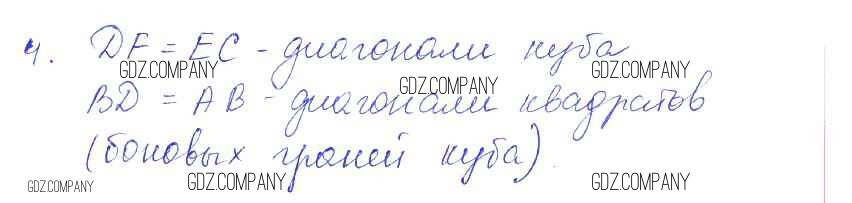 4. DF = EC - диагонали куба
GDZ.COMPANY GDZ.COMPANY GDZ.COMPANY
BD = AB - диагонали квадратов
(боковых граней куба).
GDZ.COMPANY GDZ.COMPANY GDZ.COMPANY